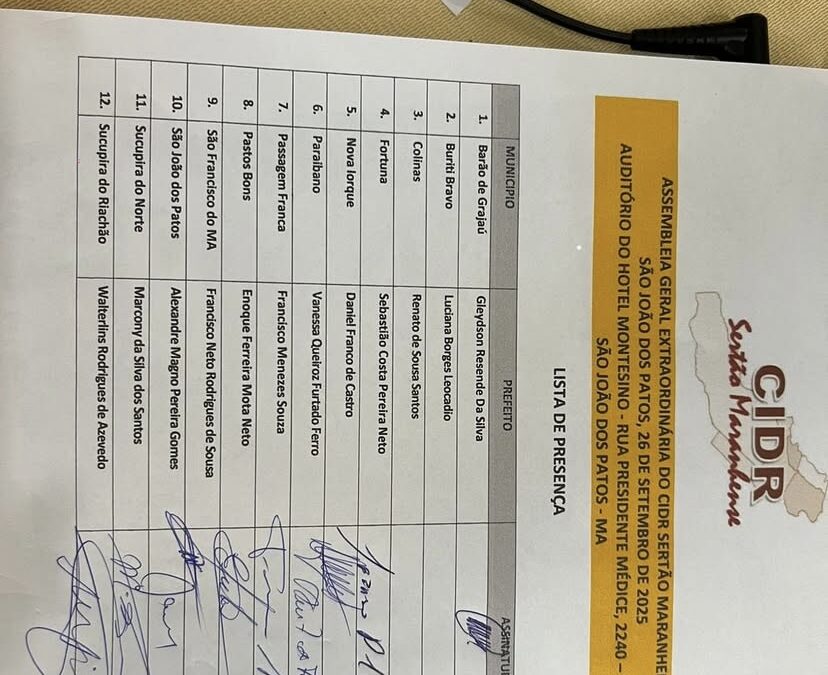 CIDR
Sertão Maranhense
ASSEMBLEIA GERAL EXTRAORDINÁRIA DO CIDR SERTÃO MARANHE
SÃO JOÃO DOS PATOS, 26 DE SETEMBRO DE 2025
AUDITÓRIO DO HOTEL MONTESINO - RUA PRESIDENTE MÉDICE, 2240 –
SÃO JOÃO DOS PATOS - MA
LISTA DE PRESENÇA
MUNICIPIO PREFEITO ASSINATU
1. Barão de Grajaú Gleydson Resende Da Silva
2. Buriti Bravo Luciana Borges Leocadio
3. Colinas Renato de Sousa Santos
4. Fortuna Sebastião Costa Pereira Neto
5. Nova Iorque Daniel Franco de Castro
6. Paraibano Vanessa Queiroz Furtado Ferro
7. Passagem Franca Francisco Menezes Souza
8. Pastos Bons Enoque Ferreira Mota Neto
9. São Francisco do MA Francisco Neto Rodrigues de Sousa
10. São João dos Patos Alexandre Magno Pereira Gomes
11. Sucupira do Norte Marcony da Silva dos Santos
12. Sucupira do Riachão Walterlins Rodrigues de Azevedo